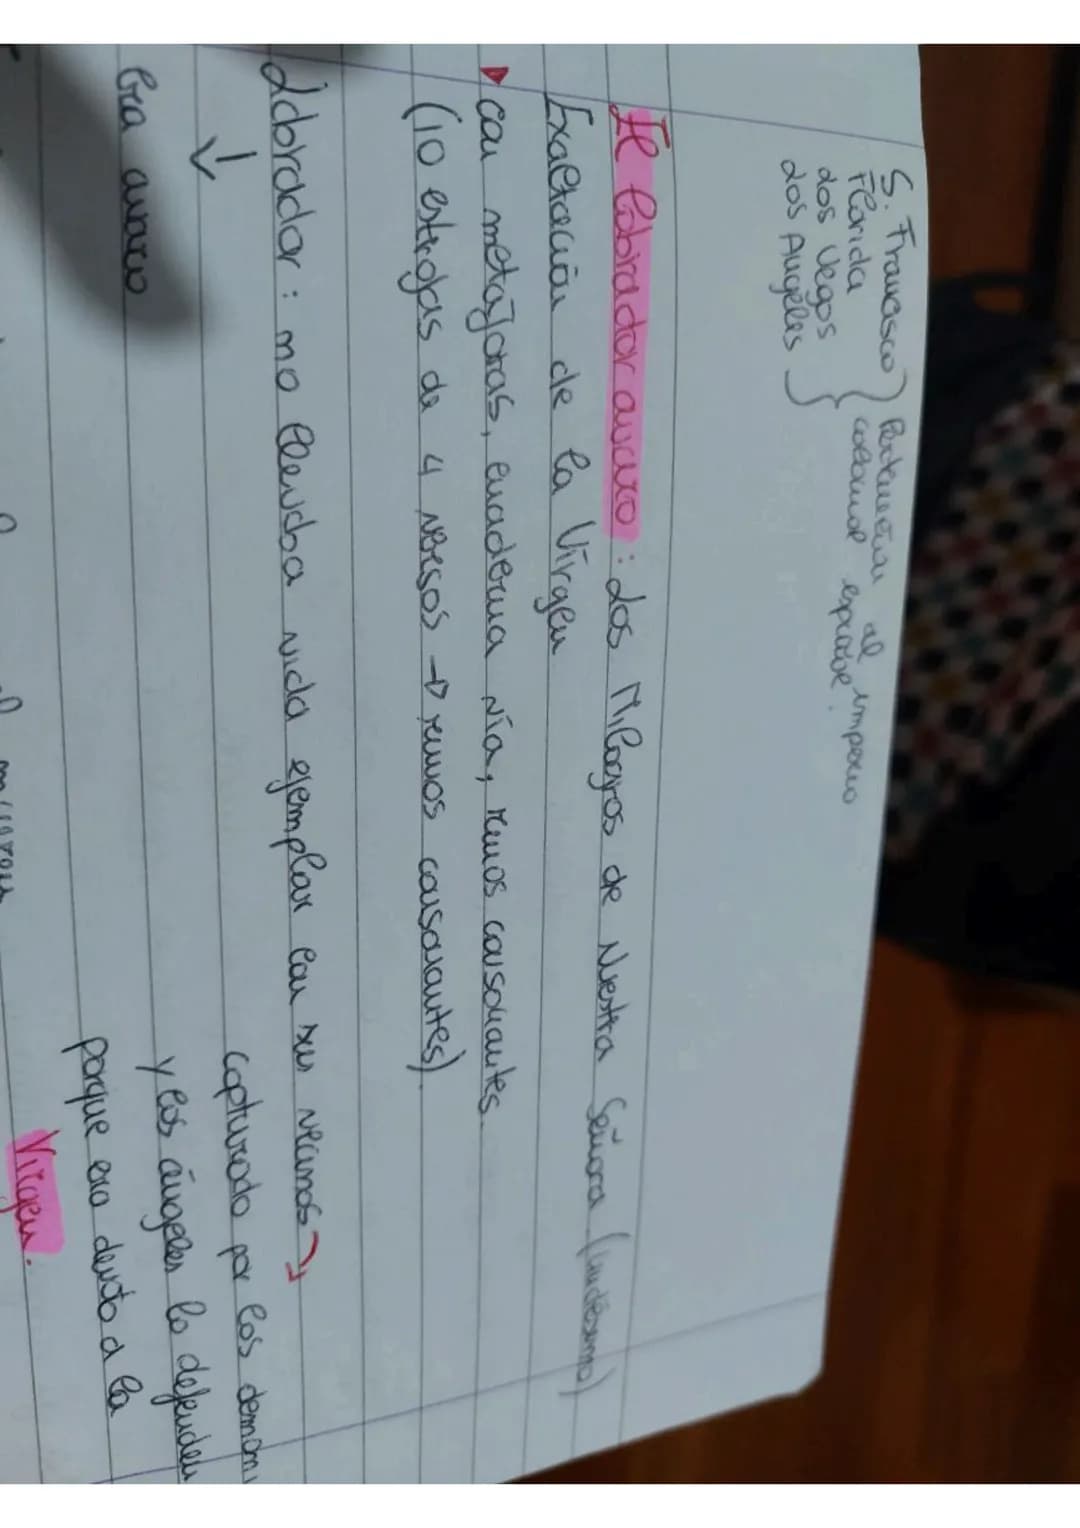 S. Francisco
Florida
Las Vegas
Los Angeles
Pertenecían al imperio
colonial español.
El labrador avaro: Los Milagros de Nuestra Señora (undécimo)
Exaltación de la Virgen
con metáforas, cuaderna vía, rimas consonantes.
(10 estrofas de 4 versos → rimas consonantes).
Labrador: no llevaba vida ejemplar con sus vecinos
↓
Era avaro
capturado por los demoni
y los ángeles lo defienden
porque era devoto a la
Virgen.